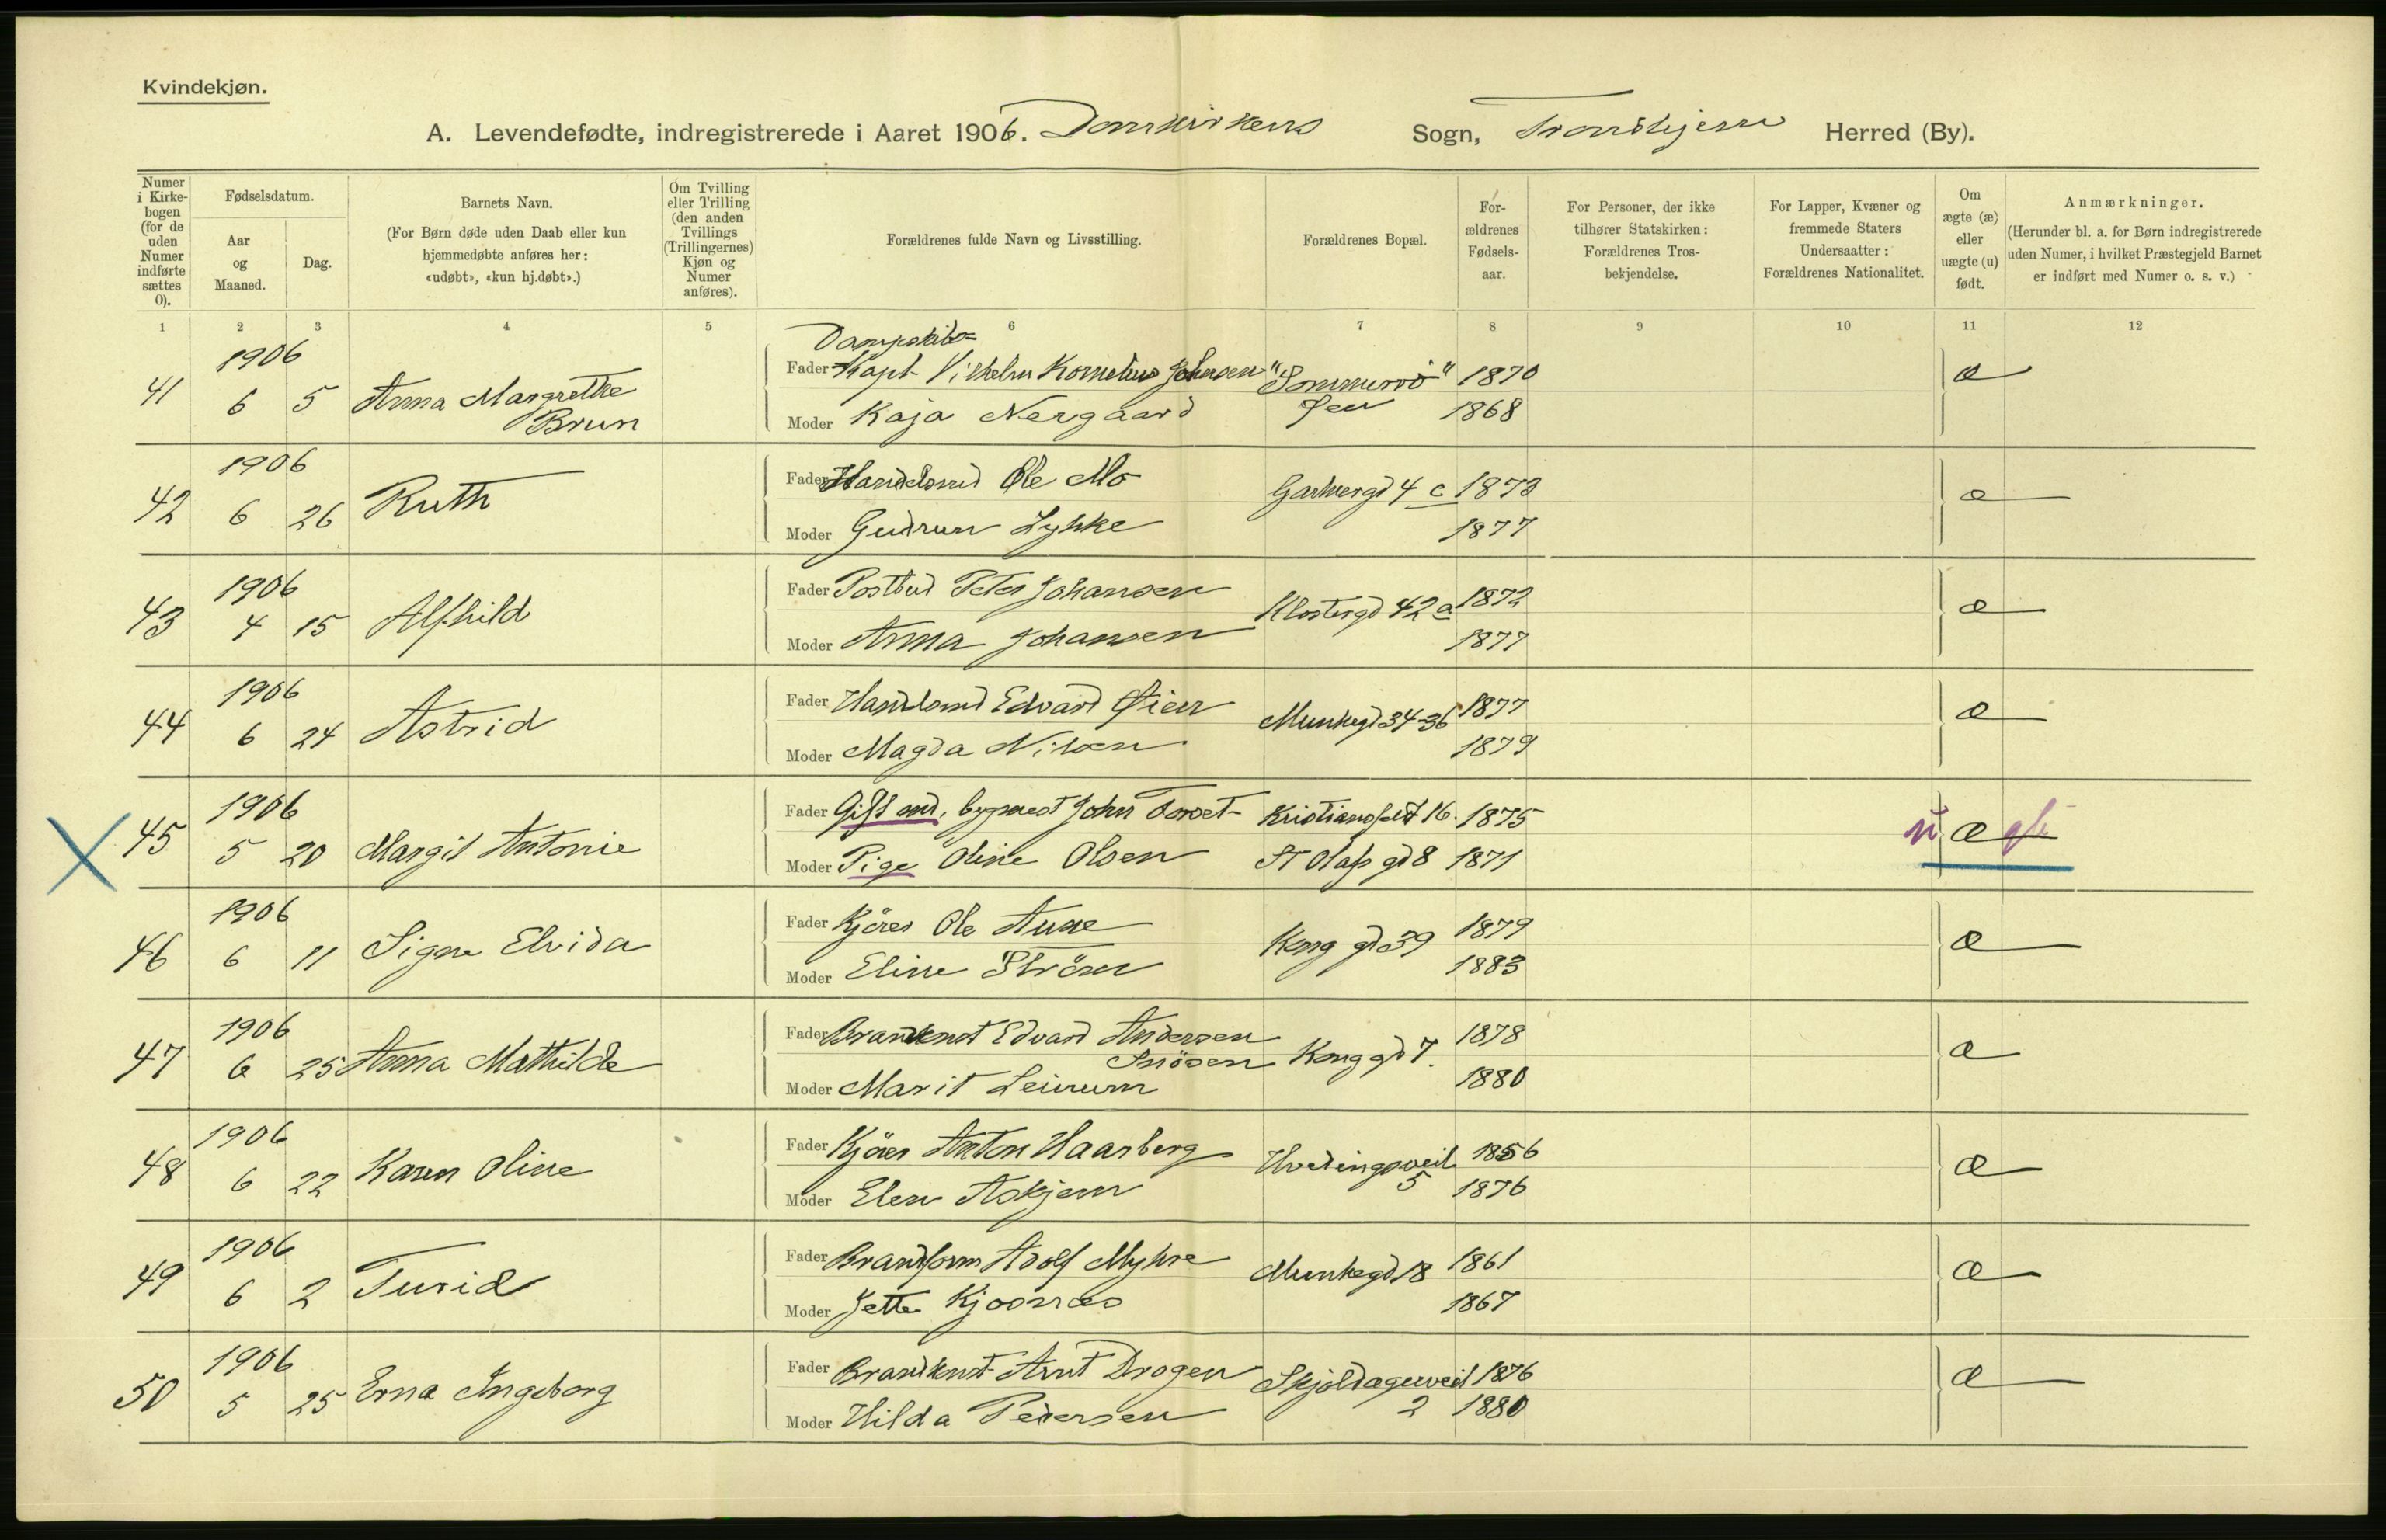 Kvindekjøn.
A. Levendefødte, indregistrerede i Aaret 1906. Domkirkens Sogn, Trondhjem Herred (By).
Numer i Kirkebogen (for de uden Numer indførte sættes 0).
Fødselsdatum.
Aar og Maaned.
Dag.
Barnets Navn.
(For Børn døde uden Daab eller kun hjemmedøbte anføres her: «udøbt», «kun hj.døbt».)
Om Tvilling eller Trilling (den anden Tvillings (Trillingernes) Kjøn og Numer anføres).
Forældrenes fulde Navn og Livsstilling.
Forældrenes Bopæl.
Forældrenes Fødselsaar.
For Personer, der ikke tilhører Statskirken: Forældrenes Trosbekjendelse.
For Lapper, Kvæner og fremmede Staters Undersaatter: Forældrenes Nationalitet.
Om ægte (æ) eller uægte (u) født.
Anmærkninger.
(Herunder bl. a. for Børn indregistrerede uden Numer, i hvilket Præstegjeld Barnet er indført med Numer o. s. v.)
1 2 3 4 5 6 7 8 9 10 11 12
41 1906 6 5 Anna Margrethe Brun
Dampskibs-
Fader Kapt Vilhelm Kornelius Johnsen "Sommerro" 1870 æ
Moder Kaja Nergaard 1868
42 1906 6 26 Ruth
Fader Handelsmd Ole Mo Garverg d 4 c 1873 æ
Moder Gudrun Lykke 1877
43 1906 4 15 Alfhild
Fader Postbud Peter Johansen Klostergd 42 a 1872 æ
Moder Anna Johansen 1877
44 1906 6 24 Astrid
Fader Handlsmd Edvard Øien Munkegd 34-36 1877 æ
Moder Magda Nilsen 1879
45 1906 5 20 Margit Antonie
Fader Gift md, bygmest John Forset Kristiansfeldt 16. 1875 u æ
Moder Pige Oline Olsen St Olafs gd 8 1871
46 1906 6 11 Signe Elvida
Fader Kjører Ole Aune Kong gd 39 1879 æ
Moder Eline Ström 1883
47 1906 6 25 Anna Mathilde
Fader Brandknst Edvard Andersen Snösen Kong gd 7. 1878 æ
Moder Marit Leirum 1880
48 1906 6 22 Karen Oline
Fader Kjörer Anton Haarberg Hvedingsveit 5 1856 æ
Moder Elen Askjem 1876
49 1906 6 2 Turid
Fader Brandform Adolf Myhre Munkegd 18 1861 æ
Moder Jette Kjosnæs 1867
50 1906 5 25 Erna Ingeborg
Fader Brandknst Arnt Drogen Skjoldagerveit 2 1876 æ
Moder Hilda Pedersen 1880